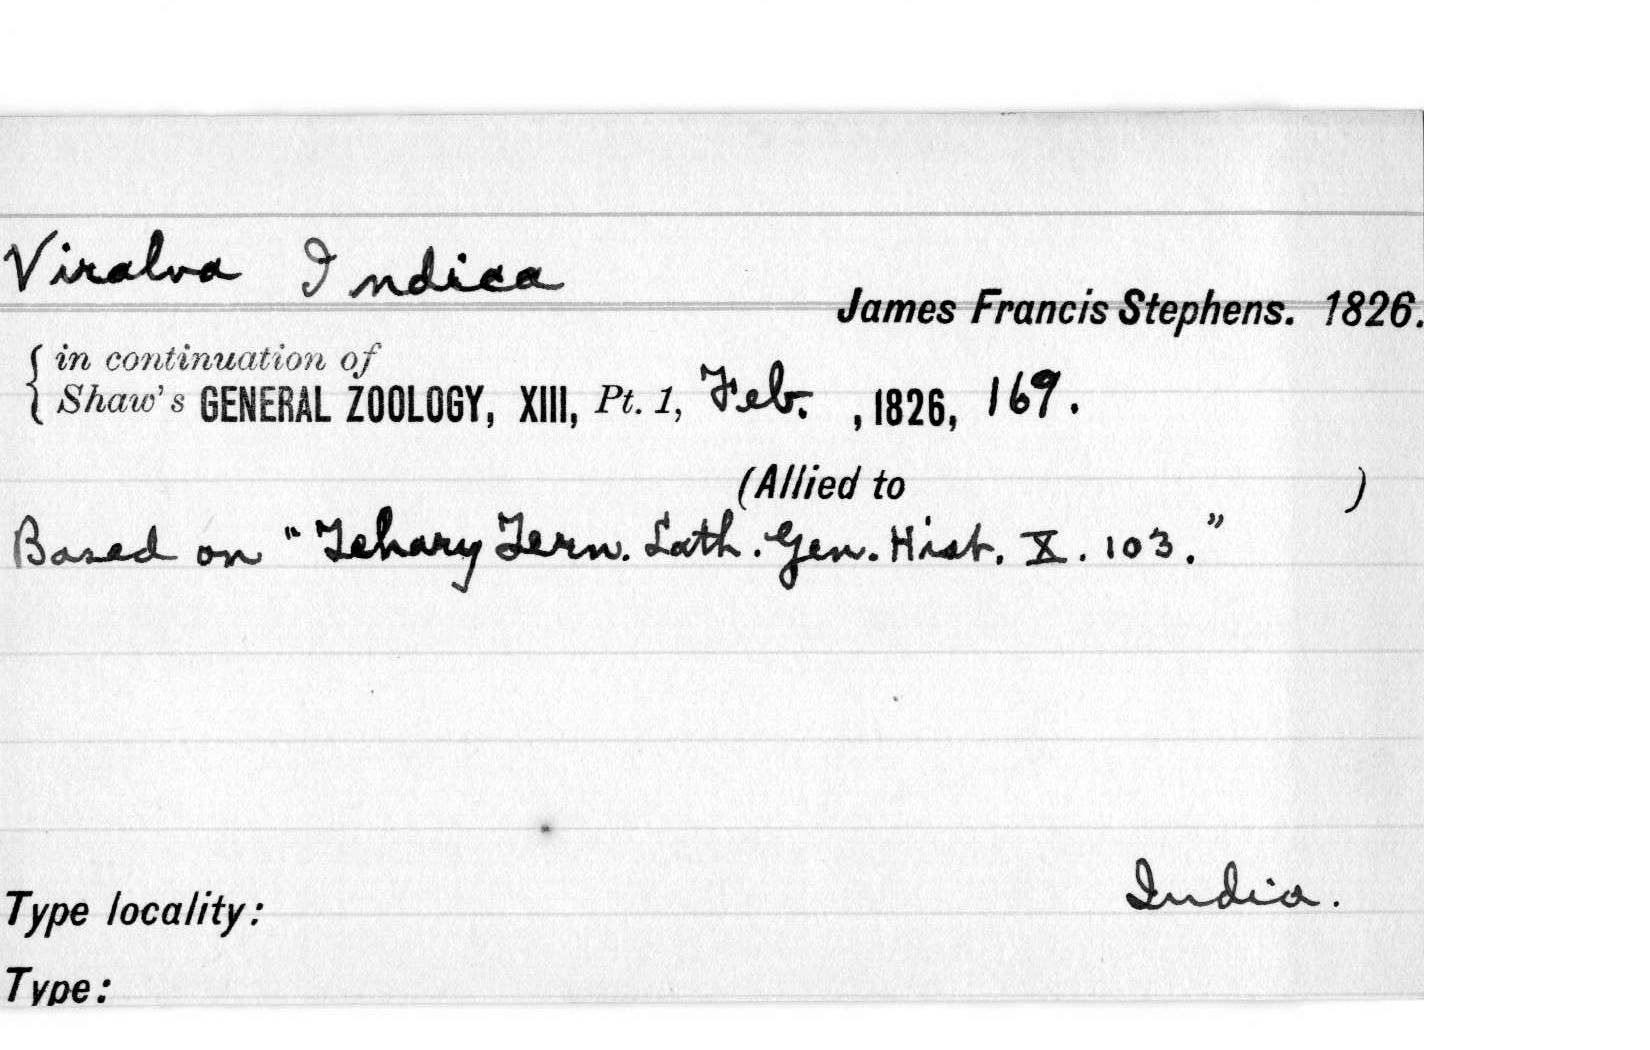 Viralva Indica
James Francis Stephens. 1826.
in continuation of
Shaw's GENERAL ZOOLOGY, XIII, Pt. 1, Feb. , 1826, 169.
(Allied to )
Based on "Tehary Tern. Lath. Gen. Hist. X. 103."
India.
Type locality:
Type: